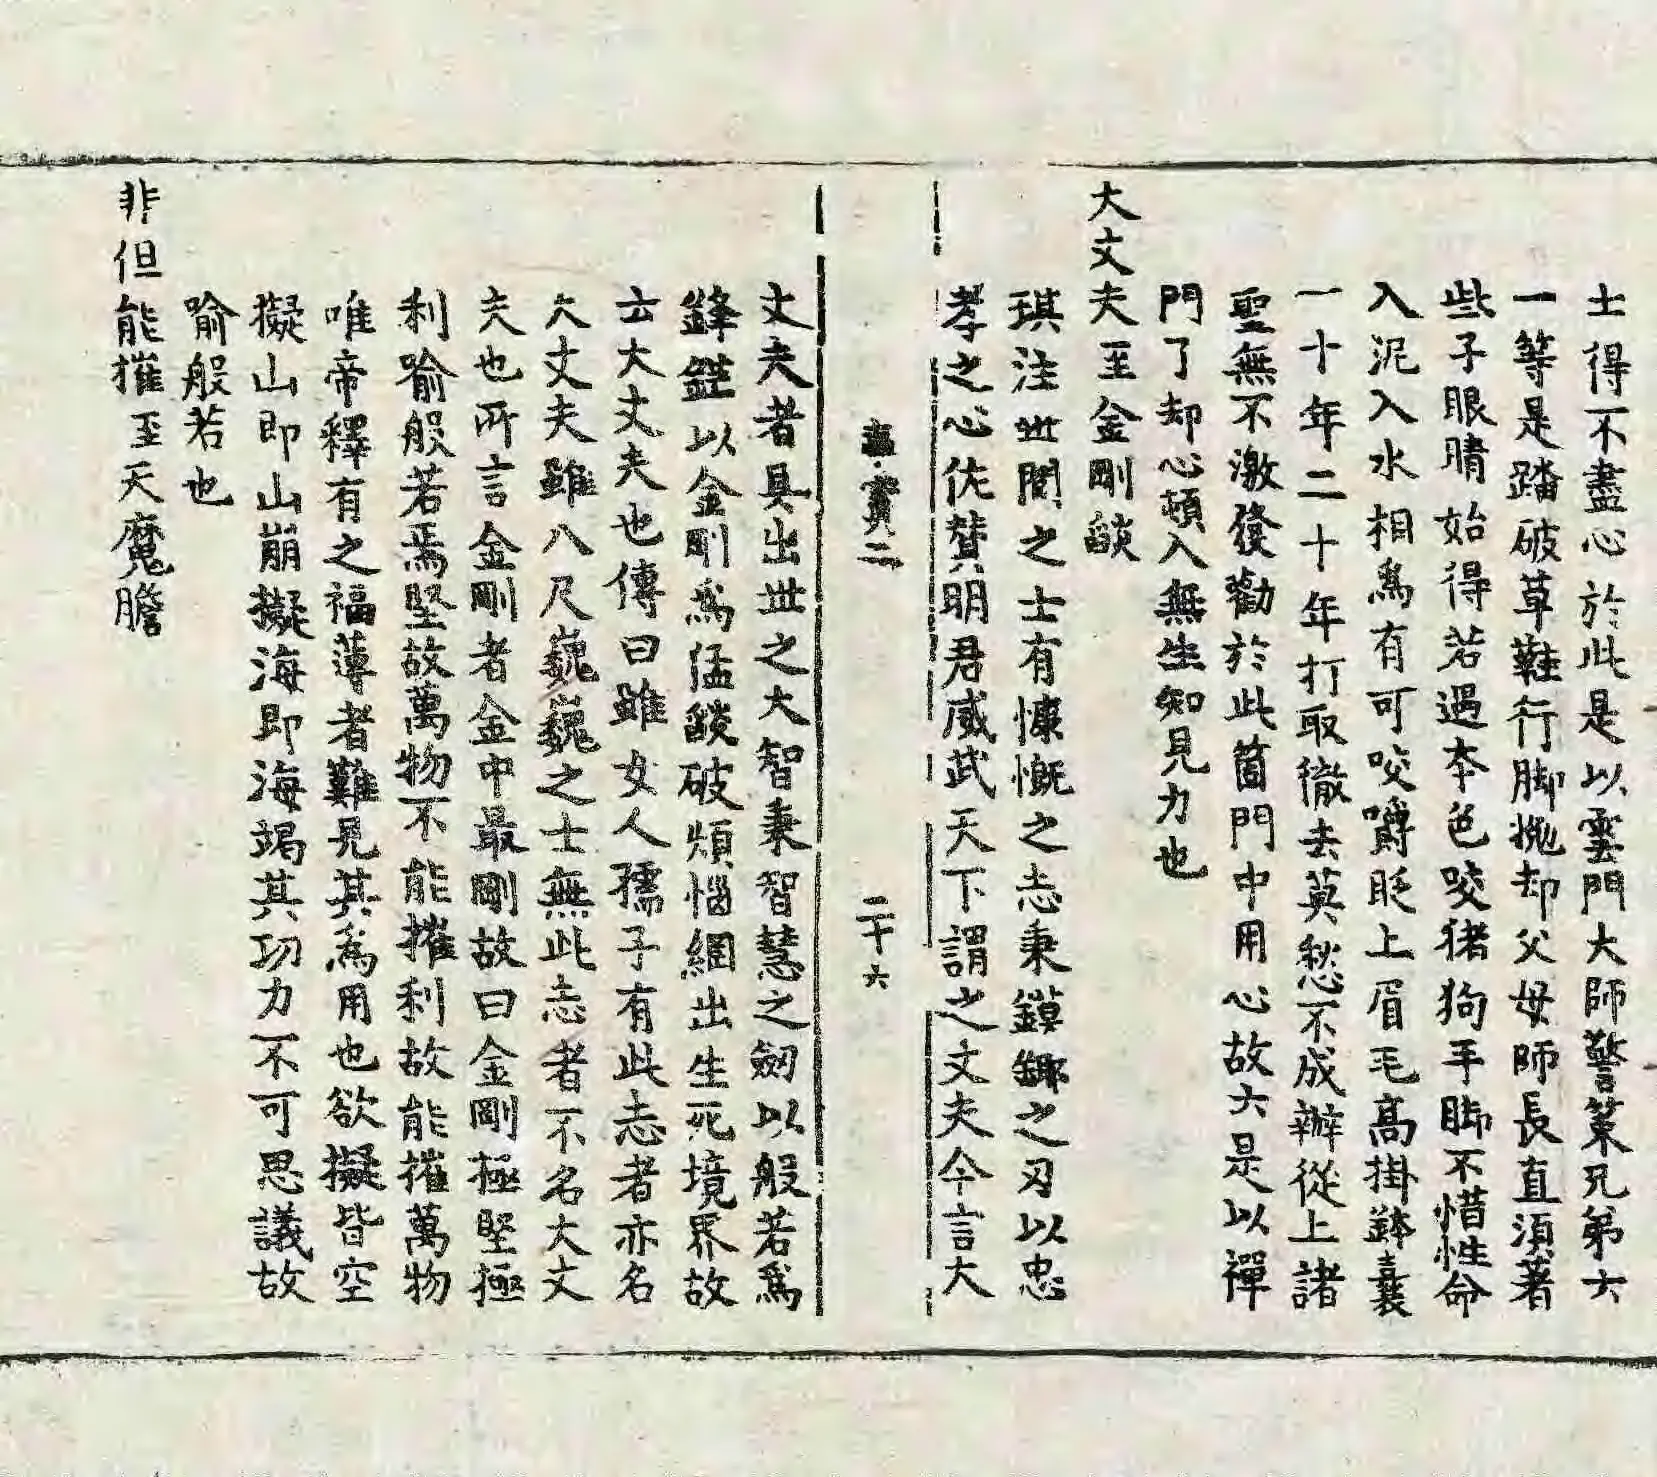 士得不盡心於此是以雲門大師警策兄弟六
一等是踏破草鞋行脚抛却父母師長直須著
些子眼睛始得若遇本色咬猪狗手脚不惜性命
入泥入水相爲有可咬嚼眨上眉毛高掛鉢囊
一十年二十年打取徹去莫愁不成辦從上諸
聖無不激發勸於此箇門中用心故六是以禪
門了却心頓入無生知見力也
大丈夫至金剛燄
琪注世間之士有慷慨之志秉鏌鎁之刃以忠
孝之心佐賛明君威武天下謂之丈夫今言大
寶二
二十六
丈夫者具出世之大智秉智慧之劒以般若爲
鋒鋩以金剛爲猛燄破煩惱網出生死境界故
云大丈夫也傳曰雖女人孺子有此志者亦名
大丈夫雖八尺巍巍之士無此志者不名大丈
夫也所言金剛者金中最剛故曰金剛極堅極
利喻般若焉堅故萬物不能摧利故能摧萬物
唯帝釋有之福薄者難見其爲用也欲擬皆空
擬山即山崩擬海即海竭其功力不可思議故
喻般若也
非但能摧至天魔膽